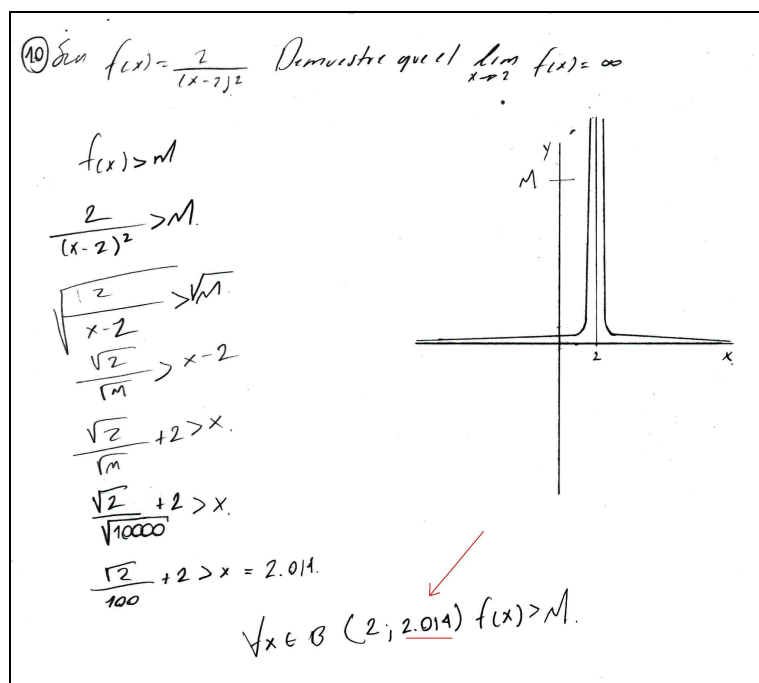 10 Sea f(x) = 2/(x-2)² Demuestre que el lim x→2 f(x) = ∞
f(x) > M
2/(x-2)² > M.
√(2/x-2) > √M
√2/√M > x-2
√2/√M + 2 > x.
√2/√10000 + 2 > x.
√2/100 + 2 > x = 2.014.
∀x ∈ B (2; 2.014) f(x) > M.
Y
M
2
X